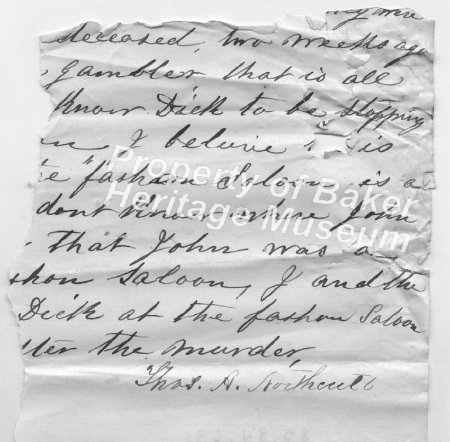 deceased, two weeks ago
gambler that is all
Know Dick to be stopping
I beleive is
"fashion Saloon is a
dont Know where John
that John was a
shon Saloon, I and the
Dick at the fashon Saloon
fter the murder,
Thos. A. Northcutt
Property of Baker
Heritage Museum